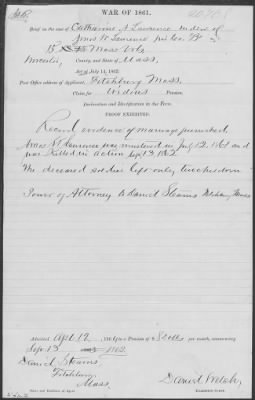 WAR OF 1861.
Brief in the case of Catharine A Lawrence widow of
Amos W Lawrence
15 Mass Vols
County, and State of Mass.
Act of July 14, 1862.
Post Office address of Applicant, Fitchburg Mass.
Claim for Widows Pension.
Declaration and Identification in Due Form.
PROOF EXHIBITED.
Record evidence of marriage furnished
Amos W Lawrence was mustered in July 12. 1861 and
was Killed in action Sept 1862
The deceased soldier left only
Power of Attorney to Daniel Stearns Fitchburg Mass
Admitted 186 to a Pension of 8 dolls per month, commencing
Sept 1862.
Daniel Stearns,
Fitchburg,
Mass.
Examining Clerk.
Name and Residence of Agent.